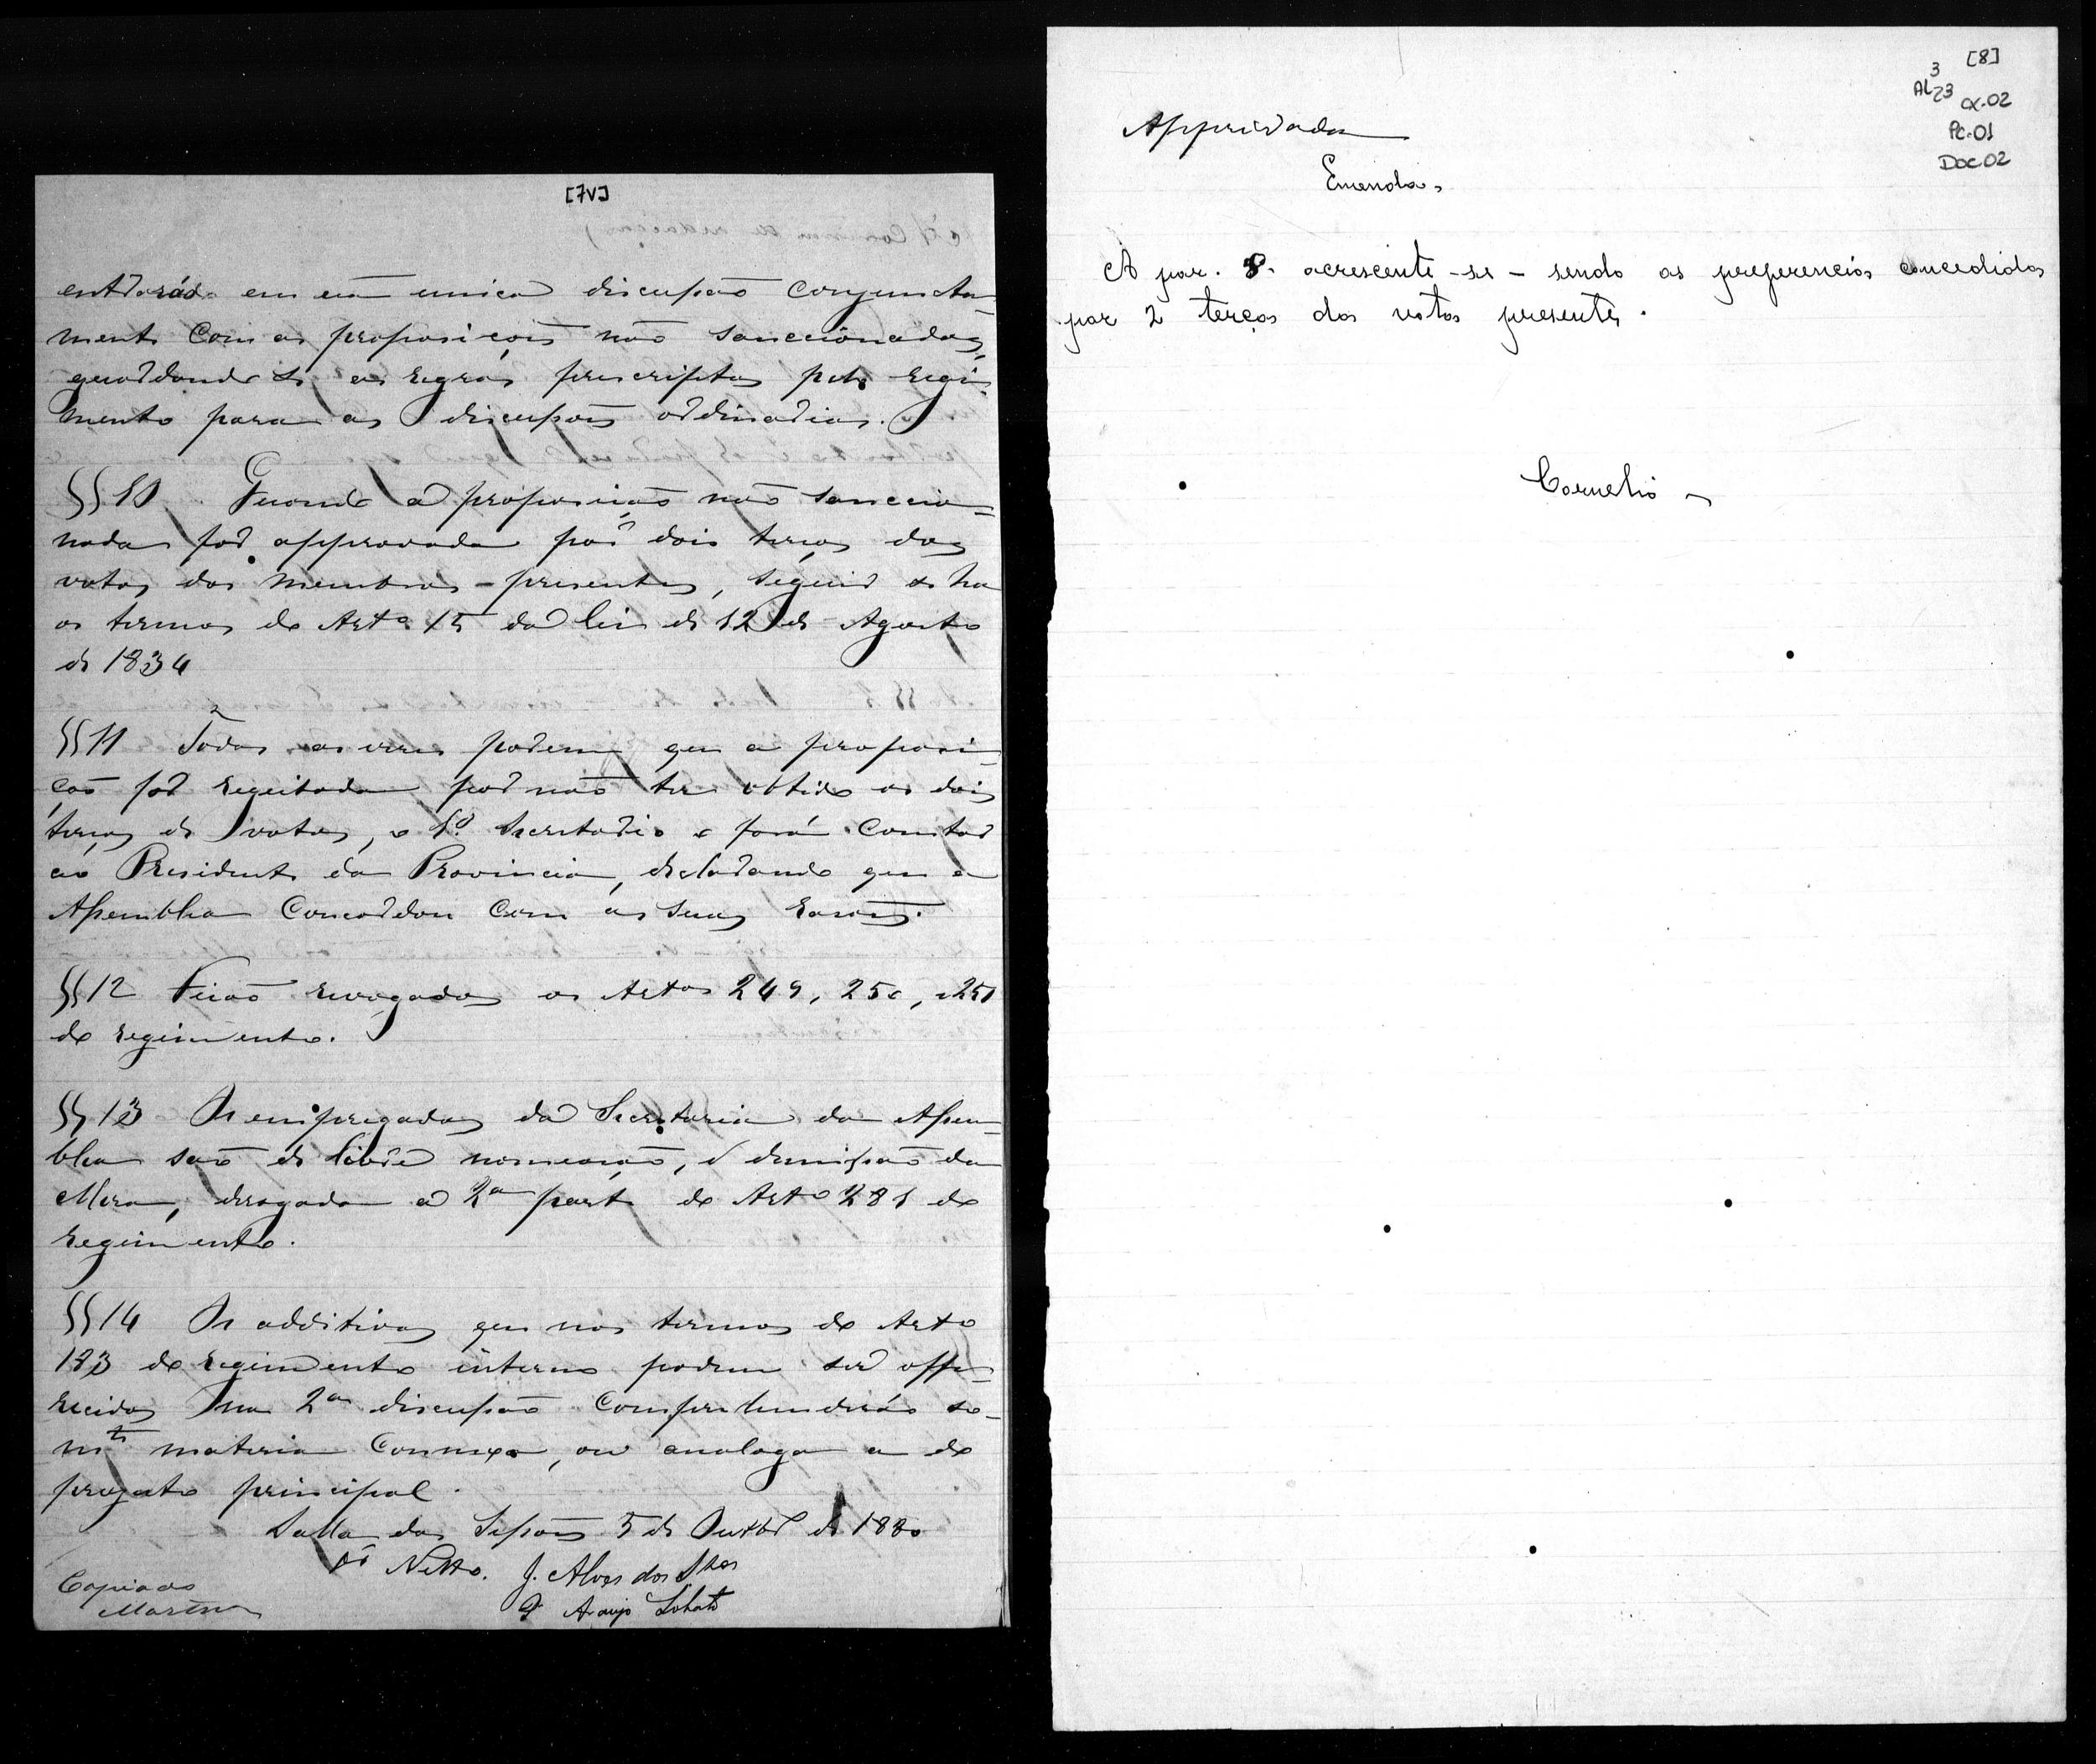 [7V]
entrarão em uma unica discussão conjuncta-
mente com as proposições não sanccionadas,
guardando-se as regras prescriptas pelo regi-
mento para as discussões ordinarias.
§§ 10 Quando a proposição não sanccio=
nada for approvada por dois terços dos
votos dos membros presentes, seguir se ha
os termos do Artº 15 da lei de 12 de Agosto
de 1834
§§ 11 Todas as vezes porem que a proposi-
ção for regeitada por não ter obtido os dois
terços de votos, o 1º Secretario o fará constar
ao Presidente da Provincia, declarando que a
Assemblea concordou com as suas rasões.
§§ 12 Ficão revogados os Artos 249, 250, e 251
do regimento.
§§ 13 Os empregados da Secretaria da Assem-
blea são de livre nomeação, e demissão da
Mesa, derogada a 2ª parte do Artº 281 do
regimento.
§§ 14 Os additivos que nos termos do Artº
183 do regimento interno podem ser offe-
recidos na 2ª discussão comprehenderão so-
mte materia connexa, ou analoga a do
projecto principal.
Salla das Sessões 5 de Outbr de 1880
Netto. J. Alves dos Stos
Araujo Lobato
Copiado
[8]
3
AL23 CX.02
PC.01
DOC.02
Approvada
Emenda.
A par. 8. acrescente-se - sendo as preferencias concedidas
por 2 terços dos votos presentes.
Cornelio